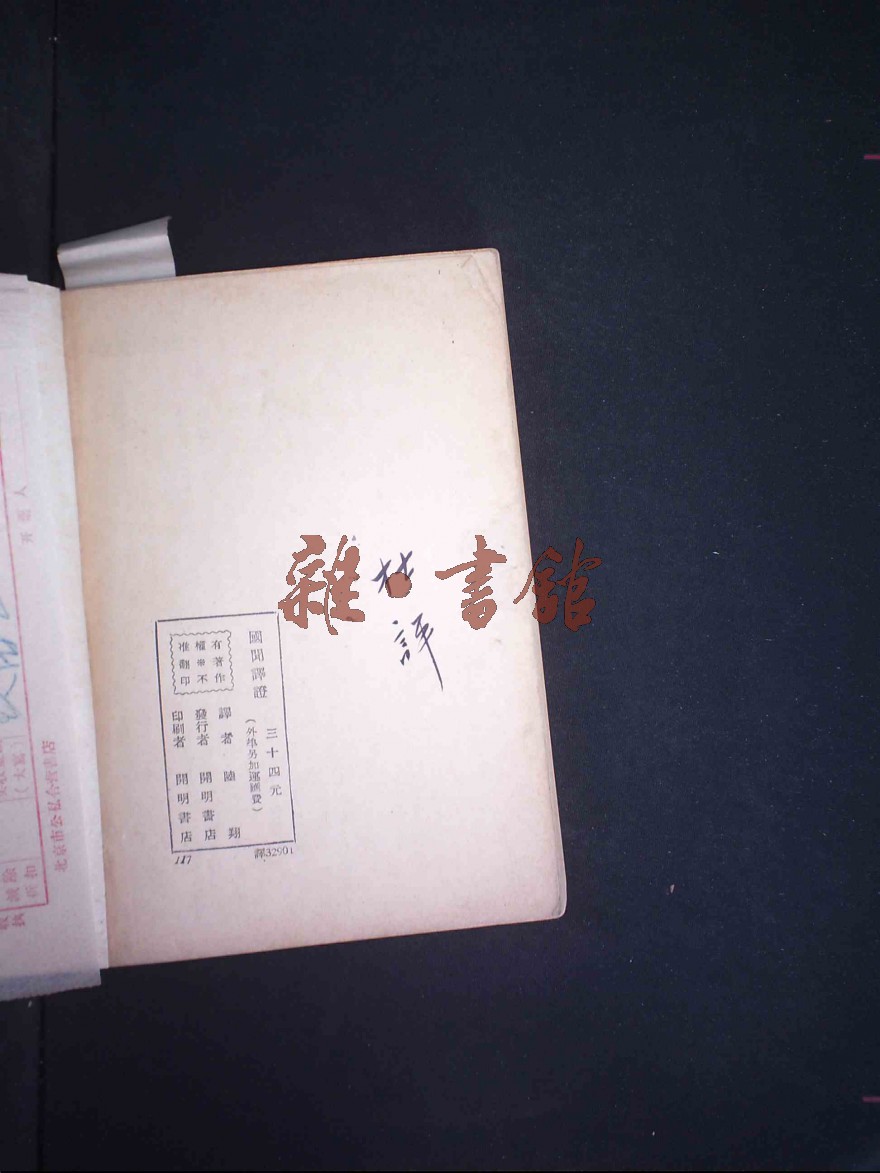 雜·書館
國聞譯證
三十四元
(外埠另加運匯費)
譯者 陸翔
發行者 開明書店
印刷者 開明書店
有著作
權※不
准翻印
117
譯32901
譯
北京市公私合營書店
(大寫)